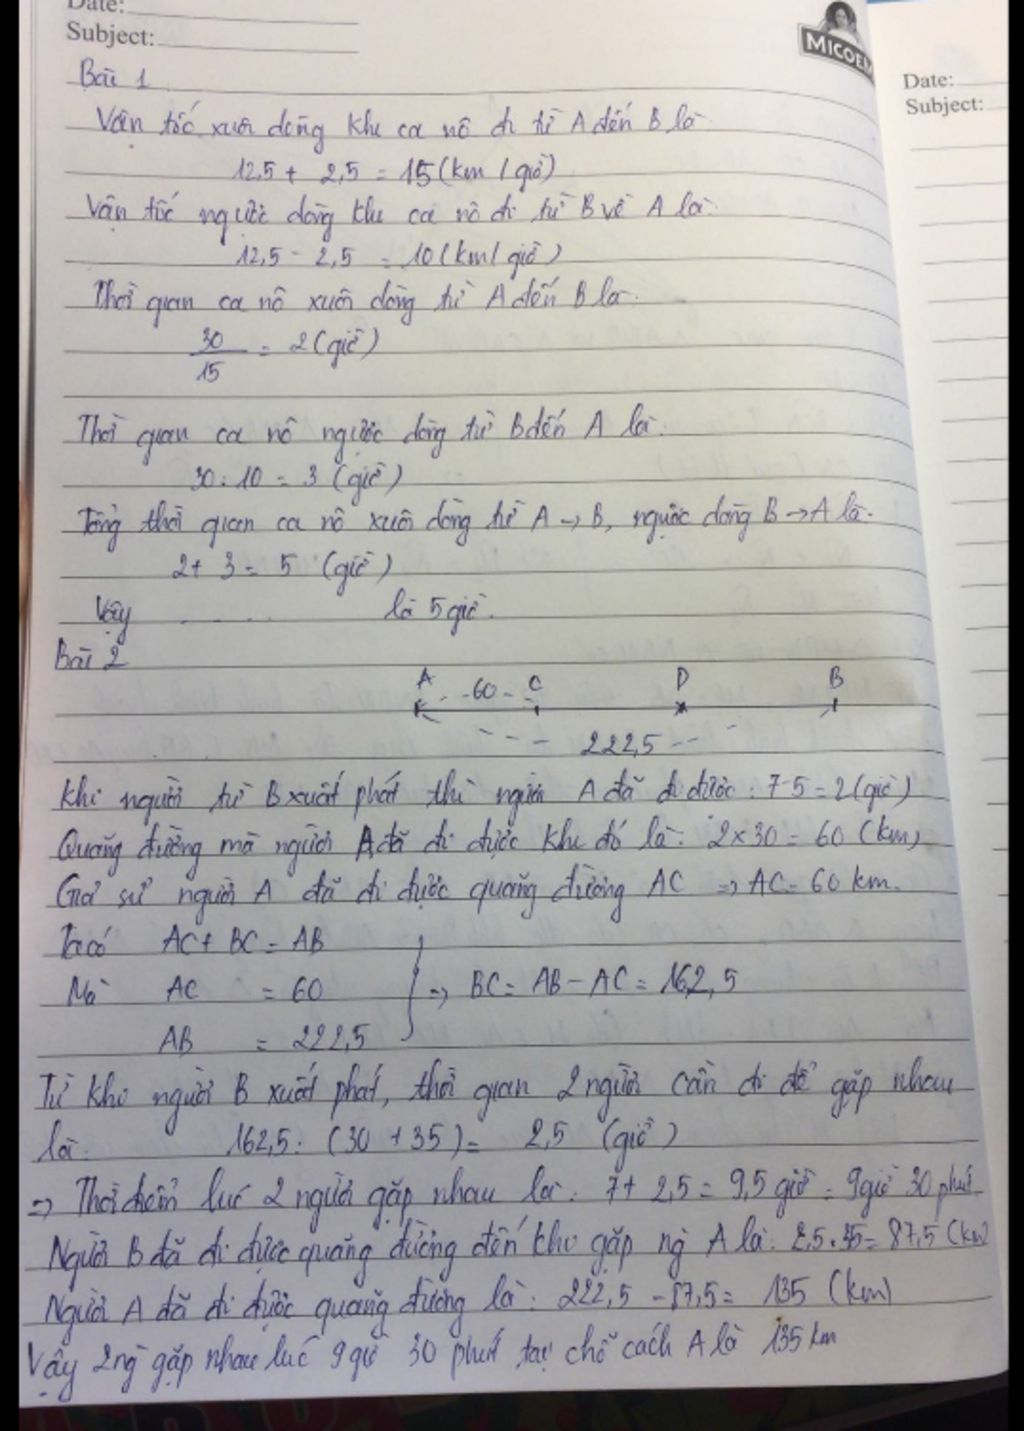 Date:
Subject:
MICOEM
Date:
Subject:
Bài 1
Vận tốc xuôi dòng khi ca nô đi từ A đến B là:
12,5 + 2,5 = 15 (km / giờ)
Vận tốc ngược dòng khi ca nô đi từ B về A là:
12,5 - 2,5 = 10 (km/ giờ)
Thời gian ca nô xuôi dòng từ A đến B là:
30/15 = 2 (giờ)
Thời gian ca nô ngược dòng từ B đến A là:
30 : 10 = 3 (giờ)
Tổng thời gian ca nô xuôi dòng từ A → B, ngược dòng B → A là:
2 + 3 = 5 (giờ)
Vậy ..... là 5 giờ.
Bài 2
A 60 C D B
222,5
Khi người từ B xuất phát thì người A đã đi được : 7-5 = 2 (giờ)
Quãng đường mà người A đã đi được khi đó là: 2 x 30 = 60 (km)
Giả sử người A đã đi được quãng đường AC => AC = 60 km.
Ta có AC + BC = AB
Mà AC = 60 => BC = AB - AC = 162,5
AB = 222,5
Từ khi người B xuất phát, thời gian 2 người cần đi để gặp nhau
là: 162,5 : (30 + 35) = 2,5 (giờ)
=> Thời điểm lúc 2 người gặp nhau là: 7 + 2,5 = 9,5 giờ = 9 giờ 30 phút
Người B đã đi được quãng đường đến khi gặp ng A là: 2,5 . 35 = 87,5 (km)
Người A đã đi được quãng đường là: 222,5 - 87,5 = 135 (km)
Vậy 2 ng gặp nhau lúc 9 giờ 30 phút tại chỗ cách A là 135 km